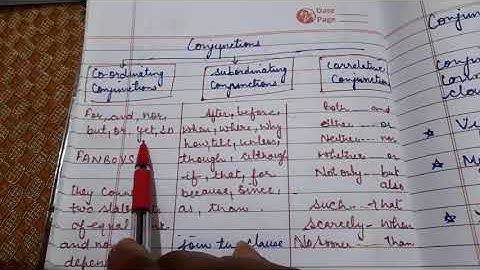 Date
Page
Conjunctions
Co-ordinating Conjunctions
Subordinating Conjunctions
Correlative Conjunction
For, and, nor,
but, or, yet, so
FANBOYS
they
two
of equal
and
After, before,
when, where, why
how, till, unless,
though, although
if, that, for
because, since,
as, than.
join two clause
both and
either or
Neither nor
Whether or
Not only but
also
such that
Scarcely when
No sooner than